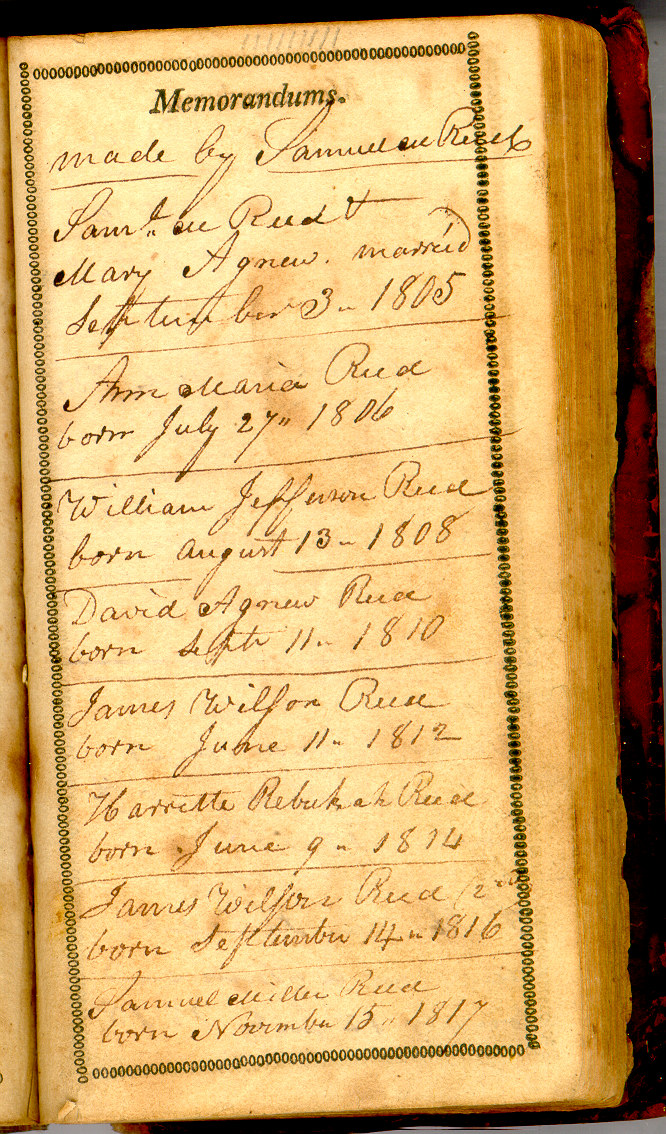 Memorandums.
made by Samuel M Reed
Saml. M Reed &
Mary Agnew. married
September 3„ 1805
Ann Maria Reed
born July 27„ 1806
William Jefferson Reed
born august 13„ 1808
David Agnew Reed
born Septr 11„ 1810
James Wilson Reed
born June 11„ 1812
Harrette Rebekah Reed
born June 9„ 1814
James Wilson Reed (2nd)
born September 14„ 1816
Samuel Miller Reed
born November 15„ 1817